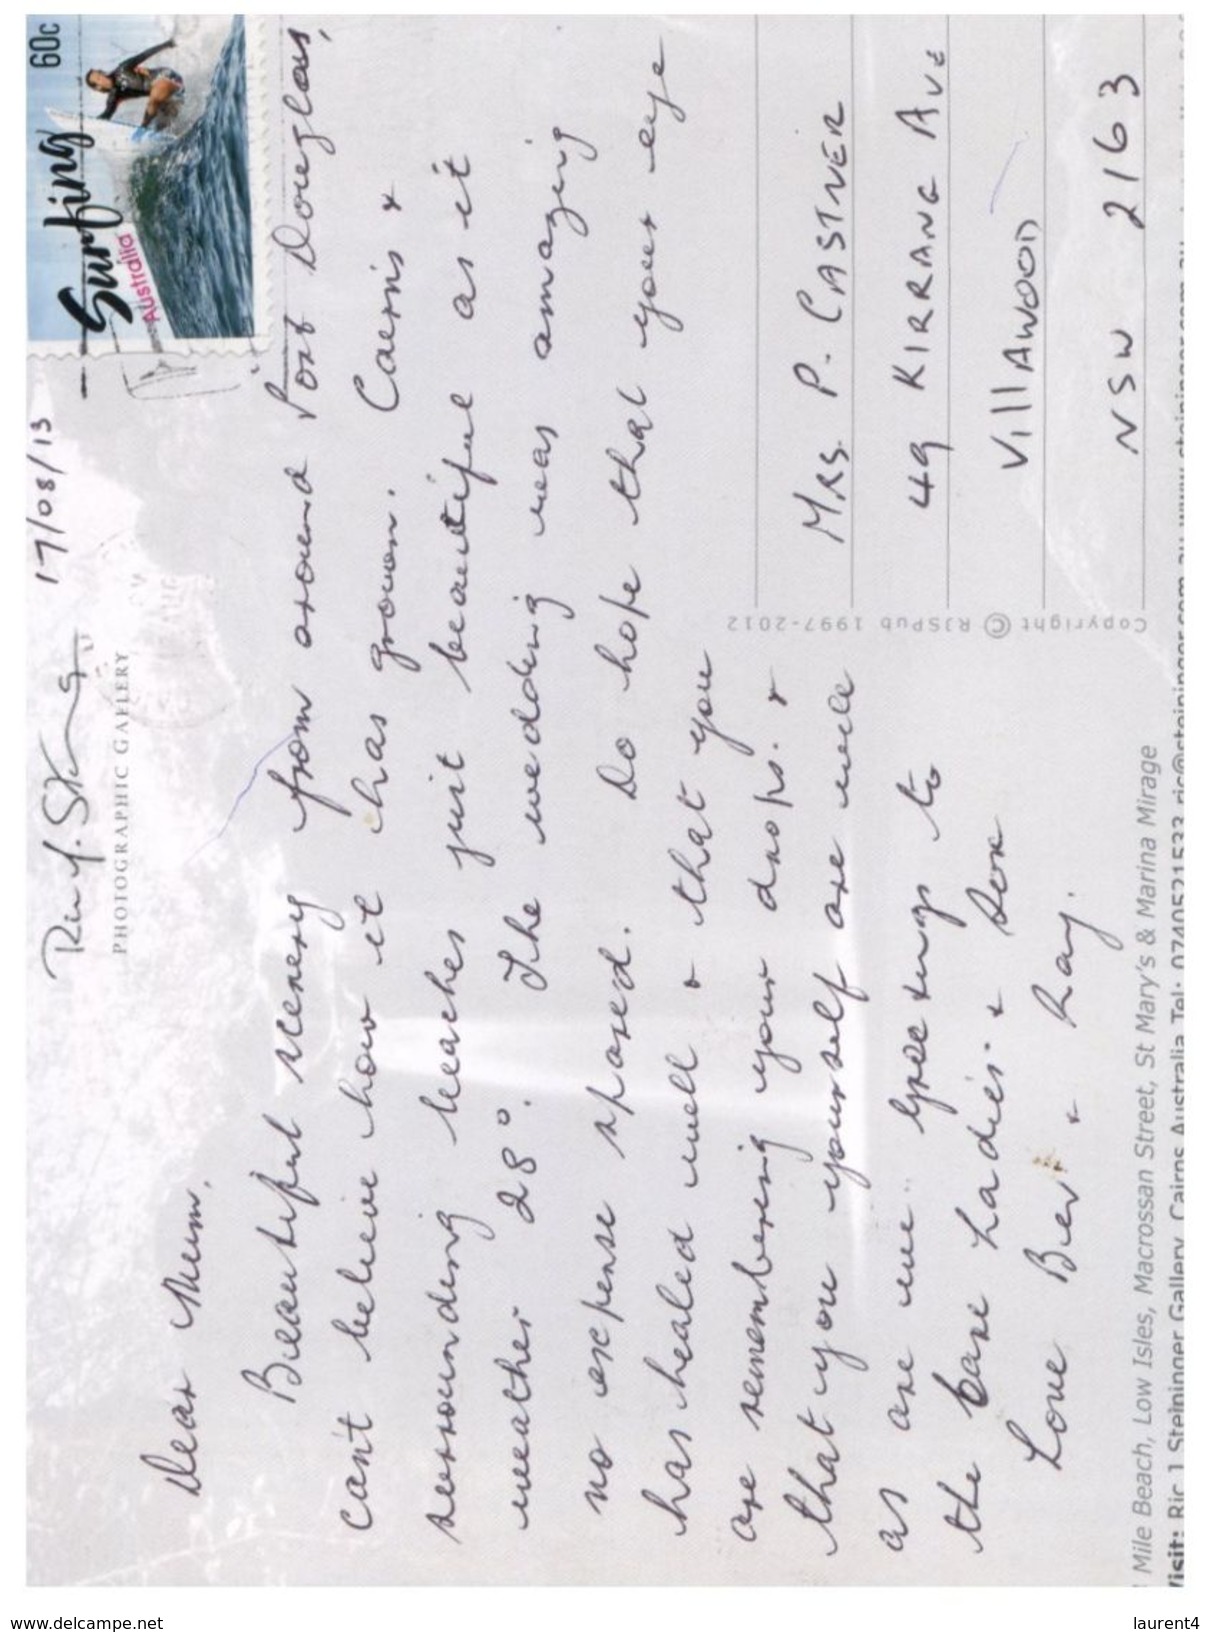 17/08/13
60c
Surfing
Australia
PHOTOGRAPHIC GALLERY
Dear Mum,
Beautiful scenery from around Port Douglas,
can't believe how it has grown. Cairns &
surrounding beaches just beautiful as it
weather 28°. The wedding was amazing
no expense spared. Do hope that your eye
has healed well & that you
are remembering your drops. &
that you yourself are well
as are we. Greetings to
the Care Ladies. &
Love Bev & Ray.
Copyright © RJSPub 1997-2012
MRS. P. CASTNER
49 KIRRANG AVE
VillAWOOD
NSW 2163
Mile Beach, Low Isles, Macrossan Street, St Mary's & Marina Mirage
Visit: Ric J Steininger Gallery, Cairns Australia Tel: 0740521533
www.delcampe.net
laurent4